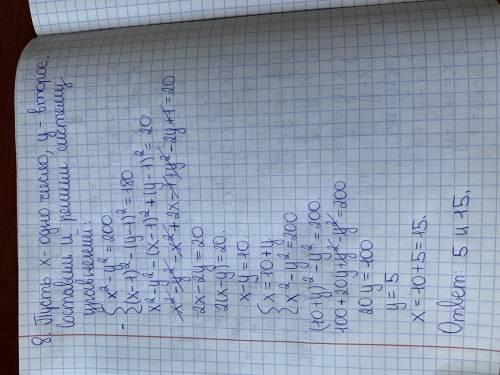 8. Пусть x - одно число, y - второе,
составим и решим систему
уравнений:
- { x² - y² = 200
{ (x-1)² - (y-1)² = 180
x² - y² - (x-1)² + (y-1)² = 20
x² - y² - x² + 2x - 1 + y² - 2y + 1 = 20
2x - 2y = 20
2(x-y) = 20.
x - y = 10
{ x = 10 + y
{ x² - y² = 200
(10+y)² - y² = 200.
100 + 20y + y² - y² = 200
20y = 100
y = 5
x = 10 + 5 = 15.
Ответ: 5 и 15.